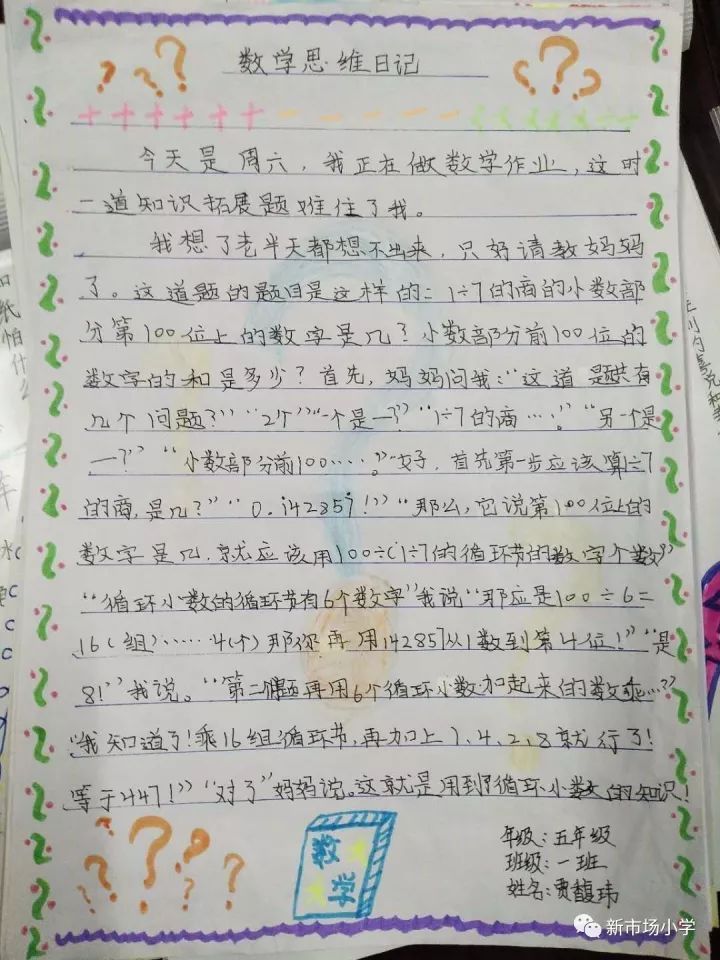 数学思维日记
今天是周六，我正在做数学作业，这时
一道知识拓展题难住了我。
我想了老半天都想不出来，只好请教妈妈
了。这道题的题目是这样的：1÷7的商的小数部
分第100位上的数字是几？小数部分前100位的
数字的和是多少？首先，妈妈问我：“这道题共有
几个问题？”“2个”“一个是一？”“1÷7的商……。”“另一个是
一？”“小数部分前100……。”“好，首先第一步应该算1÷7
的商，是几？”“0.142857！”“那么，它说第100位上的
数字是几，就应该用100÷（1÷7的循环节的数字个数）”
“循环小数的循环节有6个数字”我说“那应是100÷6=
16（组）……4（个）那你再用142857从1数到第4位！”“是
8！”我说。“第二个题再用6个循环小数加起来的数乘…？”
“我知道了！乘16组循环节，再加上1、4、2、8就行了！
等于447！”“对了”妈妈说。这就是用到了循环小数的知识！
数学
年级：五年级
班级：一班
姓名：贾馥玮
新市场小学